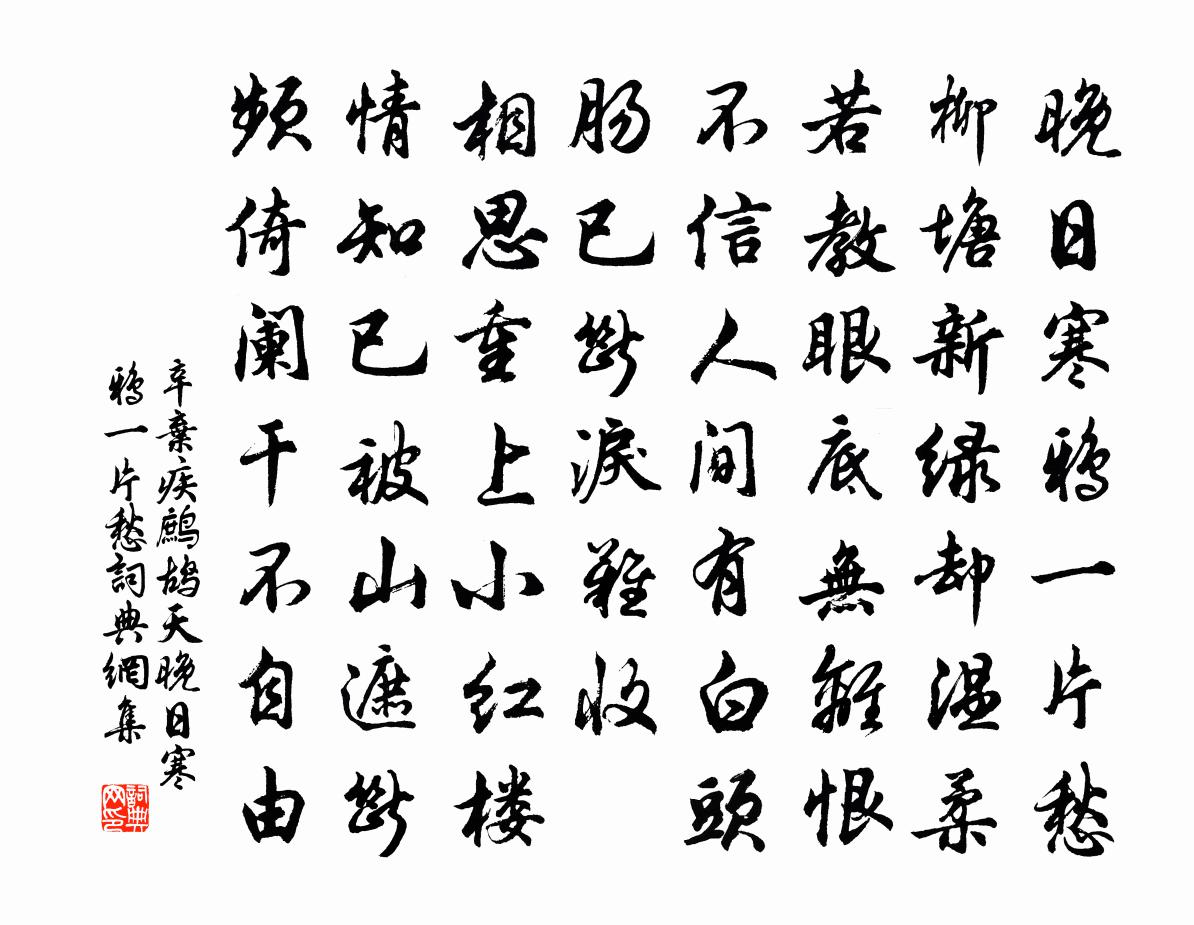 晚日寒鸦一片愁
柳塘新绿却温柔
若教眼底無離恨
不信人间有白頭
肠已斷淚難收
相思重上小红楼
情知已被山遮斷
频倚阑干不自由
辛棄疾鷓鴣天晚日寒
鸦一片愁詞典網集
詞典网印